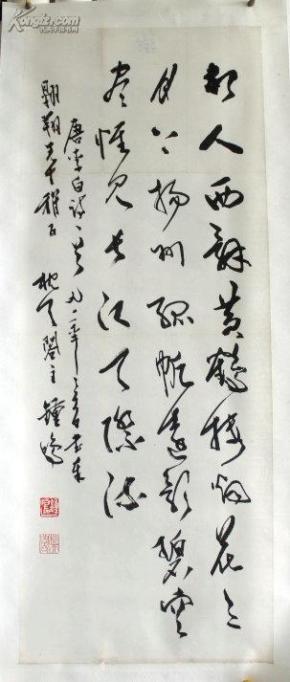 故人西辞黄鹤楼烟花三
月下扬州孤帆远影碧空
尽惟见长江天际流
唐李白诗一首
翱翔老
阁主